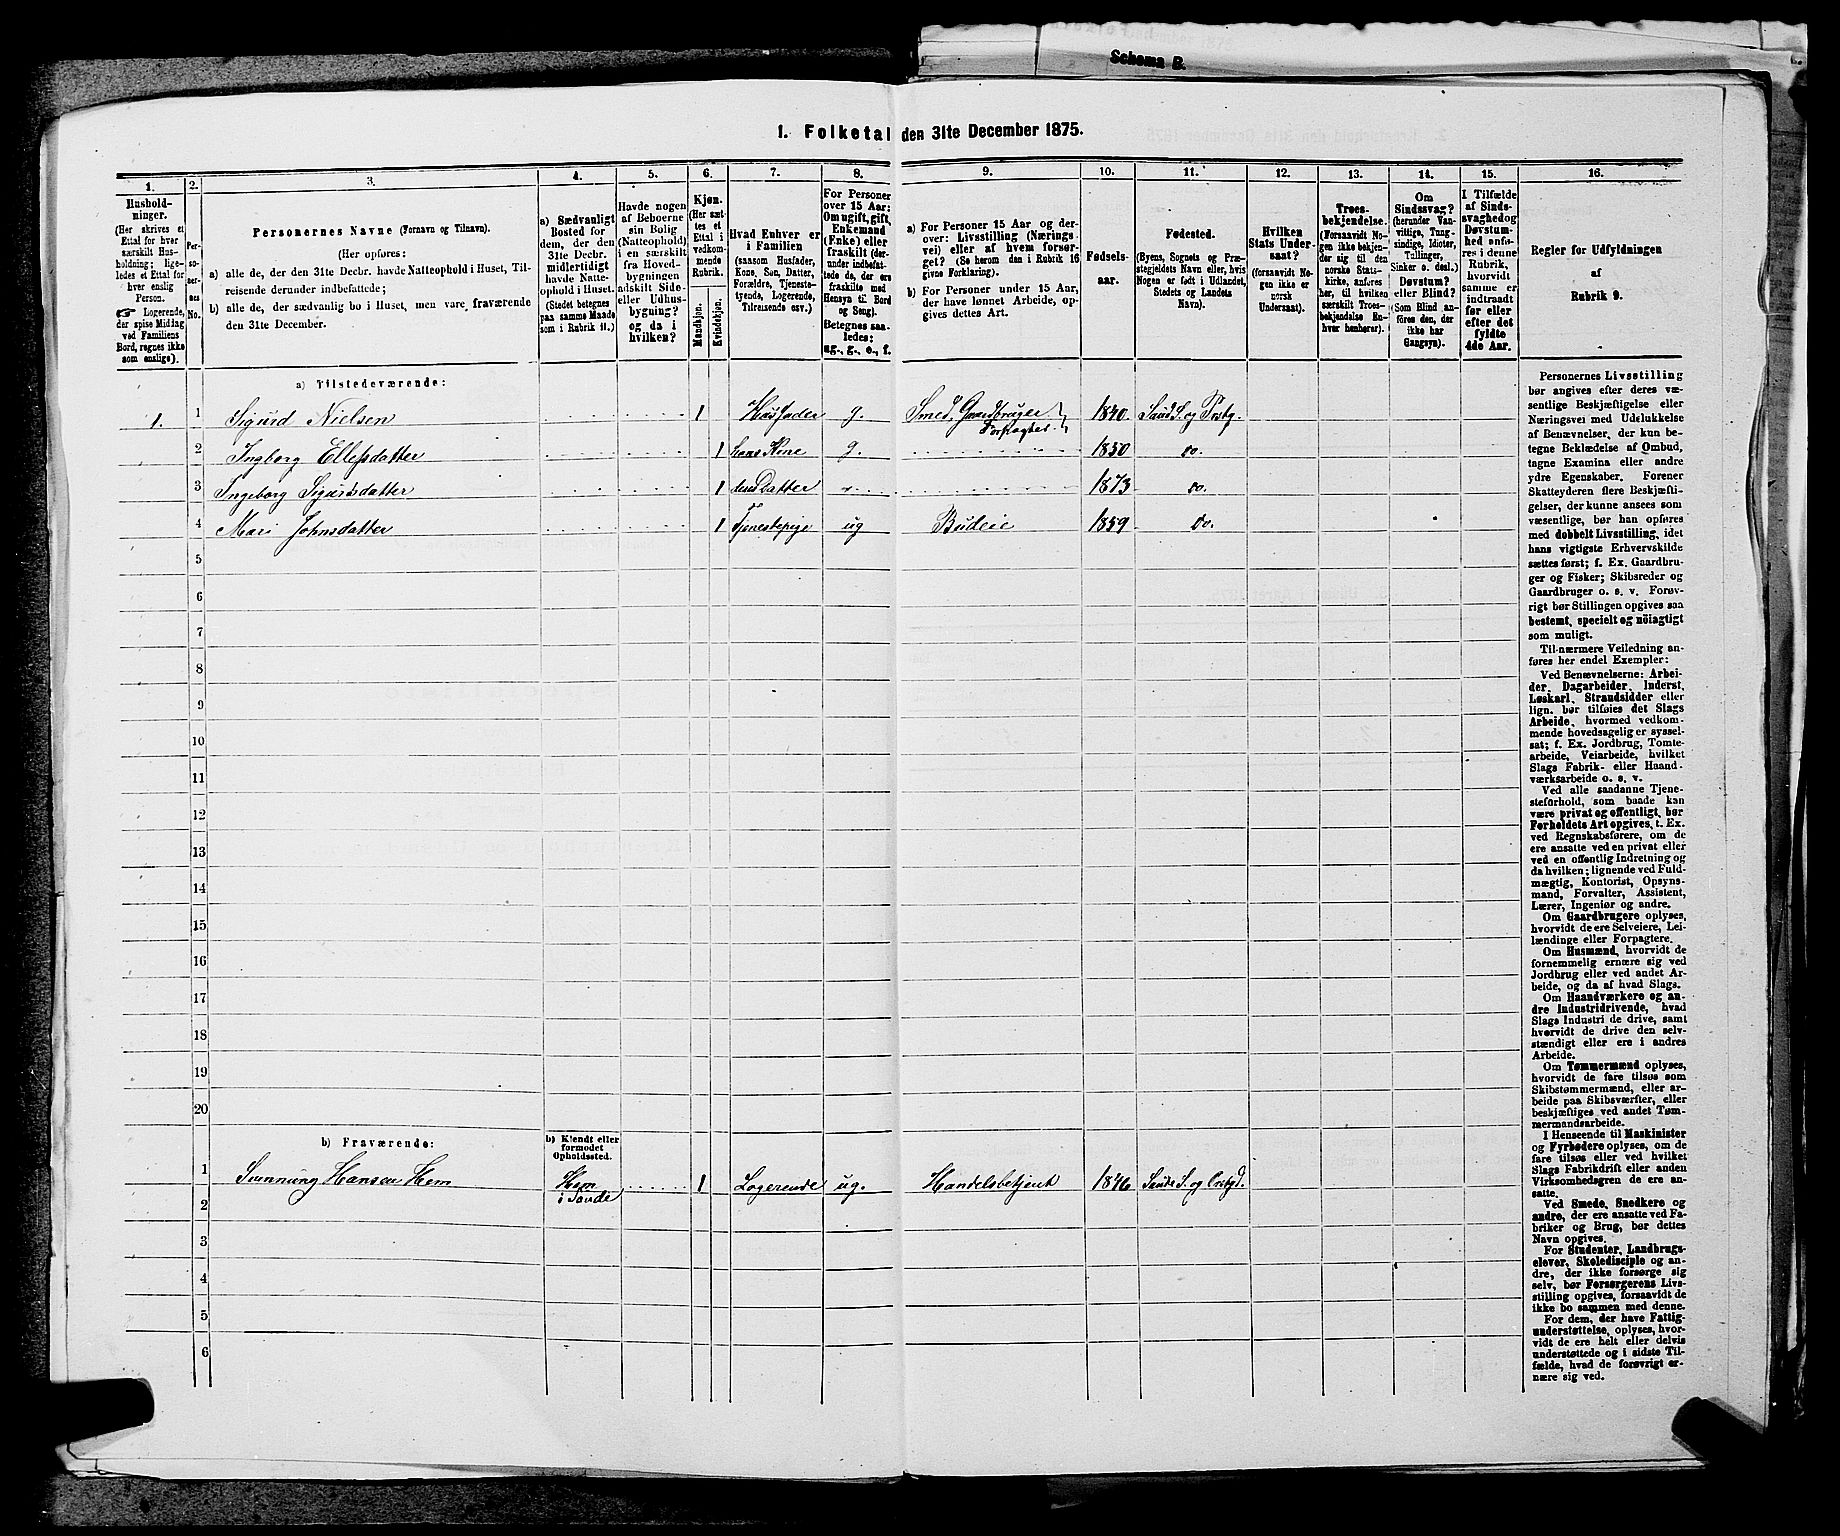 Schema B.
1. Folketal den 31te December 1875.
1.
2.
3.
4.
5.
6.
7.
8.
9.
10.
11.
12.
13.
14.
15.
16.
Hushold-
ninger.
(Her skrives et
Ettal for hver
særskilt Hus-
holdning; lige-
ledes et Ettal for
hver enslig
Person.
☞ Logerende,
der spise Middag
ved Familiens
Bord, regnes ikke
som enslige).
Per-
so-
ner-
nes
No.
Personernes Navne (Fornavn og Tilnavn).
(Her opføres:
a) alle de, der den 31te Decbr. havde Natteophold i Huset, Til-
reisende derunder indbefattede;
b) alle de, der sædvanlig bo i Huset, men vare fraværende
den 31te December.
a) Sædvanligt
Bosted for
dem, der den
31te Decbr.
midlertidigt
havde Natte-
ophold i Huset.
(Stedet betegnes
paa samme Maade
som i Rubrik 11.)
Havde nogen
af Beboerne
sin Bolig
(Natteophold)
i en særskilt
fra Hoved-
bygningen
adskilt Side-
eller Udhus-
bygning?
og da i
hvilken?
Kjøn.
(Her sæt-
tes et
Ettal i
vedkom-
mende
Rubrik.
Mandkjøn.
Kvindekjøn.
Hvad Enhver er
i Familien
(saasom Husfader,
Kone, Søn, Datter,
Forældre, Tjeneste-
tyende, Logerende,
Tilreisende osv.)
For Personer
over 15 Aar:
Om ugift, gift,
Enkemand
(Enke) eller
fraskilt (der-
under indbefat-
tede de, der ere
fraskilte med
Hensyn til Bord
og Seng).
Betegnes saa-
ledes:
ug., g., e., f.
a) For Personer 15 Aar og der-
over: Livsstilling (Nærings-
vei) eller af hvem forsør-
get? (Se herom den i Rubrik 16
givne Forklaring).
b) For Personer under 15 Aar,
der have lønnet Arbeide, op-
gives dettes Art.
Fødsels-
aar.
Fødested.
(Byens, Sognets og Præ-
stegjeldets Navn eller, hvis
Nogen er født i Udlandet,
Stedets og Landets
Navn).
Hvilken
Stats Under-
saat?
(forsaavidt No-
gen ikke er
norsk
Undersaat).
Troes-
bekjendelse.
(Forsaavidt No-
gen ikke bekjen-
der sig til den
norske Stats-
kirke, anføres
her, til hvilken
særskilt Troes-
bekjendelse En-
hver henhører).
Om
Sindssvag?
(herunder Van-
vittige, Tung-
sindige, Idioter,
Tullinger,
Sinker o. desl.)
Døvstum?
eller Blind?
(Som Blind an-
føres den, der
ikke har
Gangsyn).
I Tilfælde
af Sinds-
svaghed og
Døvstum-
hed anfø-
res i denne
Rubrik,
hvorvidt
samme er
indtraadt
før eller
efter det
fyldte
4de Aar.
Regler for Udfyldningen
af
Rubrik 9.
a) Tilstedeværende:
1. 1 Sigurd Nielsen 1 Husfader g. Smed, Gaardbruger Forpagter 1840 Saude S. og Prstg.
2 Ingborg Ellefsdatter 1 hans Kone g. 1850 do.
3 Ingeborg Sigursdatter 1 deres Datter 1873 do.
4 Mari Johnsdatter 1 Tjenestepige ug Budeie 1859 Do.
5
6
7
8
9
10
11
12
13
14
15
16
17
18
19
20
b) Fraværende:
b) Kjendt eller
formodet
Opholdssted.
1 Sunnung Hansen Hem Hem i Saude 1 Logerende ug. Handelsbetjent 1846 Saude S. og Prstgd.
2
3
4
5
6
Personernes Livsstilling
bør angives efter deres væ-
sentlige Beskjæftigelse eller
Næringsvei med Udelukkelse
af Benævnelser, der kun be-
tegne Beklædelse af Ombud,
tagne Examina eller andre
ydre Egenskaber. Forener
Skatteyderen flere Beskjæfti-
gelser, der kunne ansees som
væsentlige, bør han opføres
med dobbelt Livsstilling, idet
hans vigtigste Erhvervskilde
sættes først; f. Ex. Gaardbru-
ger og Fisker; Skibsreder og
Gaardbruger o. s. v. Forøv-
rigt bør Stillingen opgives saa
bestemt, specielt og nöiagtigt
som muligt.
Til nærmere Veiledning an-
føres her endel Exempler:
Ved Benævnelserne: Arbei-
der, Dagarbeider, Inderst,
Løskarl, Strandsidder eller
lign. bør tilføies det Slags
Arbeide, hvormed vedkom-
mende hovedsagelig er syssel-
sat; f. Ex. Jordbrug, Tomte-
arbeide, Veiarbeide, hvilket
Slags Fabrik- eller Haand-
værksarbeide o. s. v.
Ved alle saadanne Tjene-
steforhold, som baade kan
være privat og offentligt, bør
Forholdets Art opgives, t. Ex.
ved Regnskabsførere, om de
ere ansatte ved en privat eller
ved en offentlig Indretning og
da hvilken; lignende ved Fuld-
mægtig, Kontorist, Opsyns-
mand, Forvalter, Assistent,
Lærer, Ingeniør og andre.
Om Gaardbrugere oplyses,
hvorvidt de ere Selveiere, Lei-
lændinge eller Forpagtere.
Om Husmænd, hvorvidt de
fornemmelig ernære sig ved
Jordbrug eller ved andet Ar-
beide, og da af hvad Slags.
Om Haandværkere og an-
dre Industridrivende, hvad
Slags Industri de drive, samt
hvorvidt de drive den selv-
stændigt eller ere i andres
Arbeide.
Om Tømmermænd oplyses,
hvorvidt de fare tilsøs som
Skibstømmermænd, eller ar-
beide paa Skibsværfter, eller
beskjæftiges ved andet Tøm-
mermandsarbeide.
I Henseende til Maskinister
og Fyrbødere oplyses, om de
fare tilsøs eller ved hvilket
Slags Fabrikdrift eller anden
Virksomhedsgren de ere an-
satte.
Ved Smede, Snedkere og
andre, der ere ansatte ved Fa-
briker og Brug, bør dettes
Navn opgives.
For Studenter, Landbrugs-
elever, Skoledisciple og an-
dre, der ikke forsørge sig
selv, bør Forsørgerens Livs-
stilling opgives, forsaavidt de
ikke bo sammen med denne.
For dem, der have Fattig-
understøttelse, oplyses, hvor-
vidt de ere helt eller delvis
understøttede og i sidste Til-
fælde, hvad de forøvrigt er-
nære sig ved.